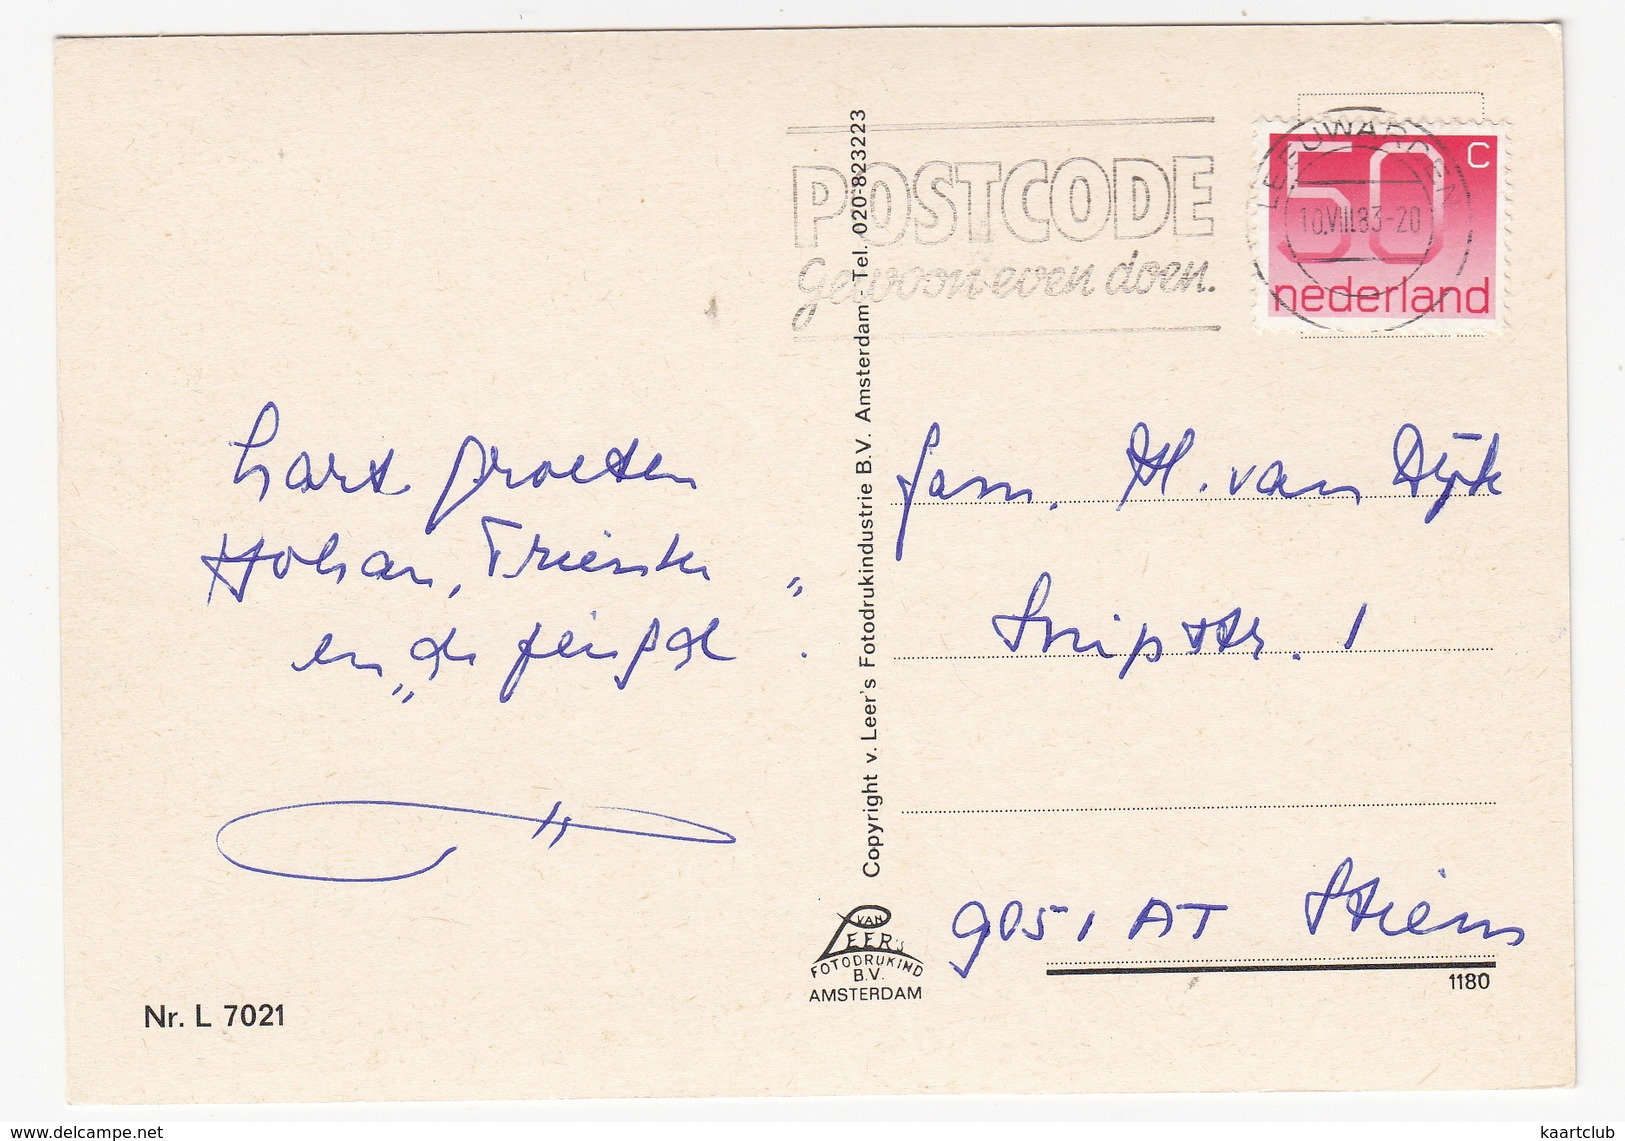 POSTCODE
gewoon even doen.
LEEUWARDEN
10.VIII.83-20
50 c
nederland
hart groeten
Johan, Trienke
en „de jeugd".
fam. H. van Dijk
Snipstr. 1
9051 AT Stiens
1180
Copyright v. Leer's Fotodrukindustrie B.V. Amsterdam - Tel. 020-823223
VAN
LEER'S
FOTODRUKIND
B.V.
AMSTERDAM
Nr. L 7021
www.delcampe.net
kaartclub